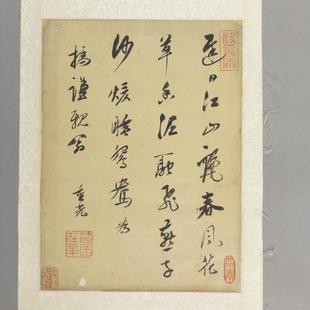 遲日江山麗春風花
草香泥融飛燕子
沙煖睡鴛鴦為
謙親翁
重光